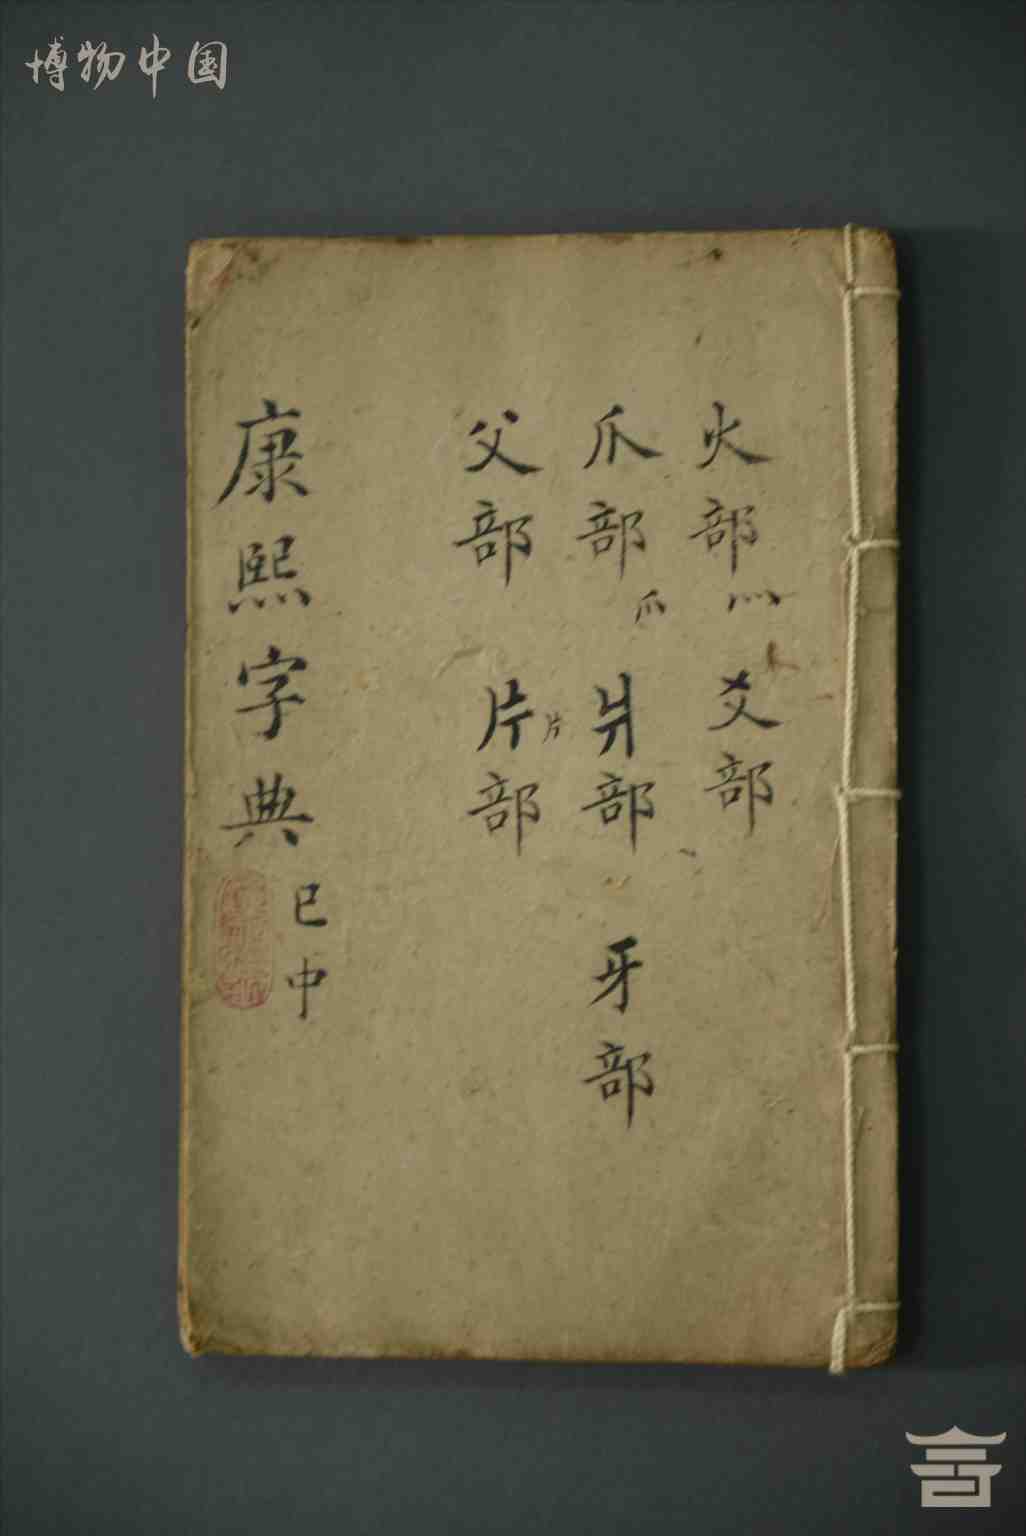 博物中国
火部灬 爻部
爪部爫 爿部 牙部
父部 片部
康熙字典 巳中